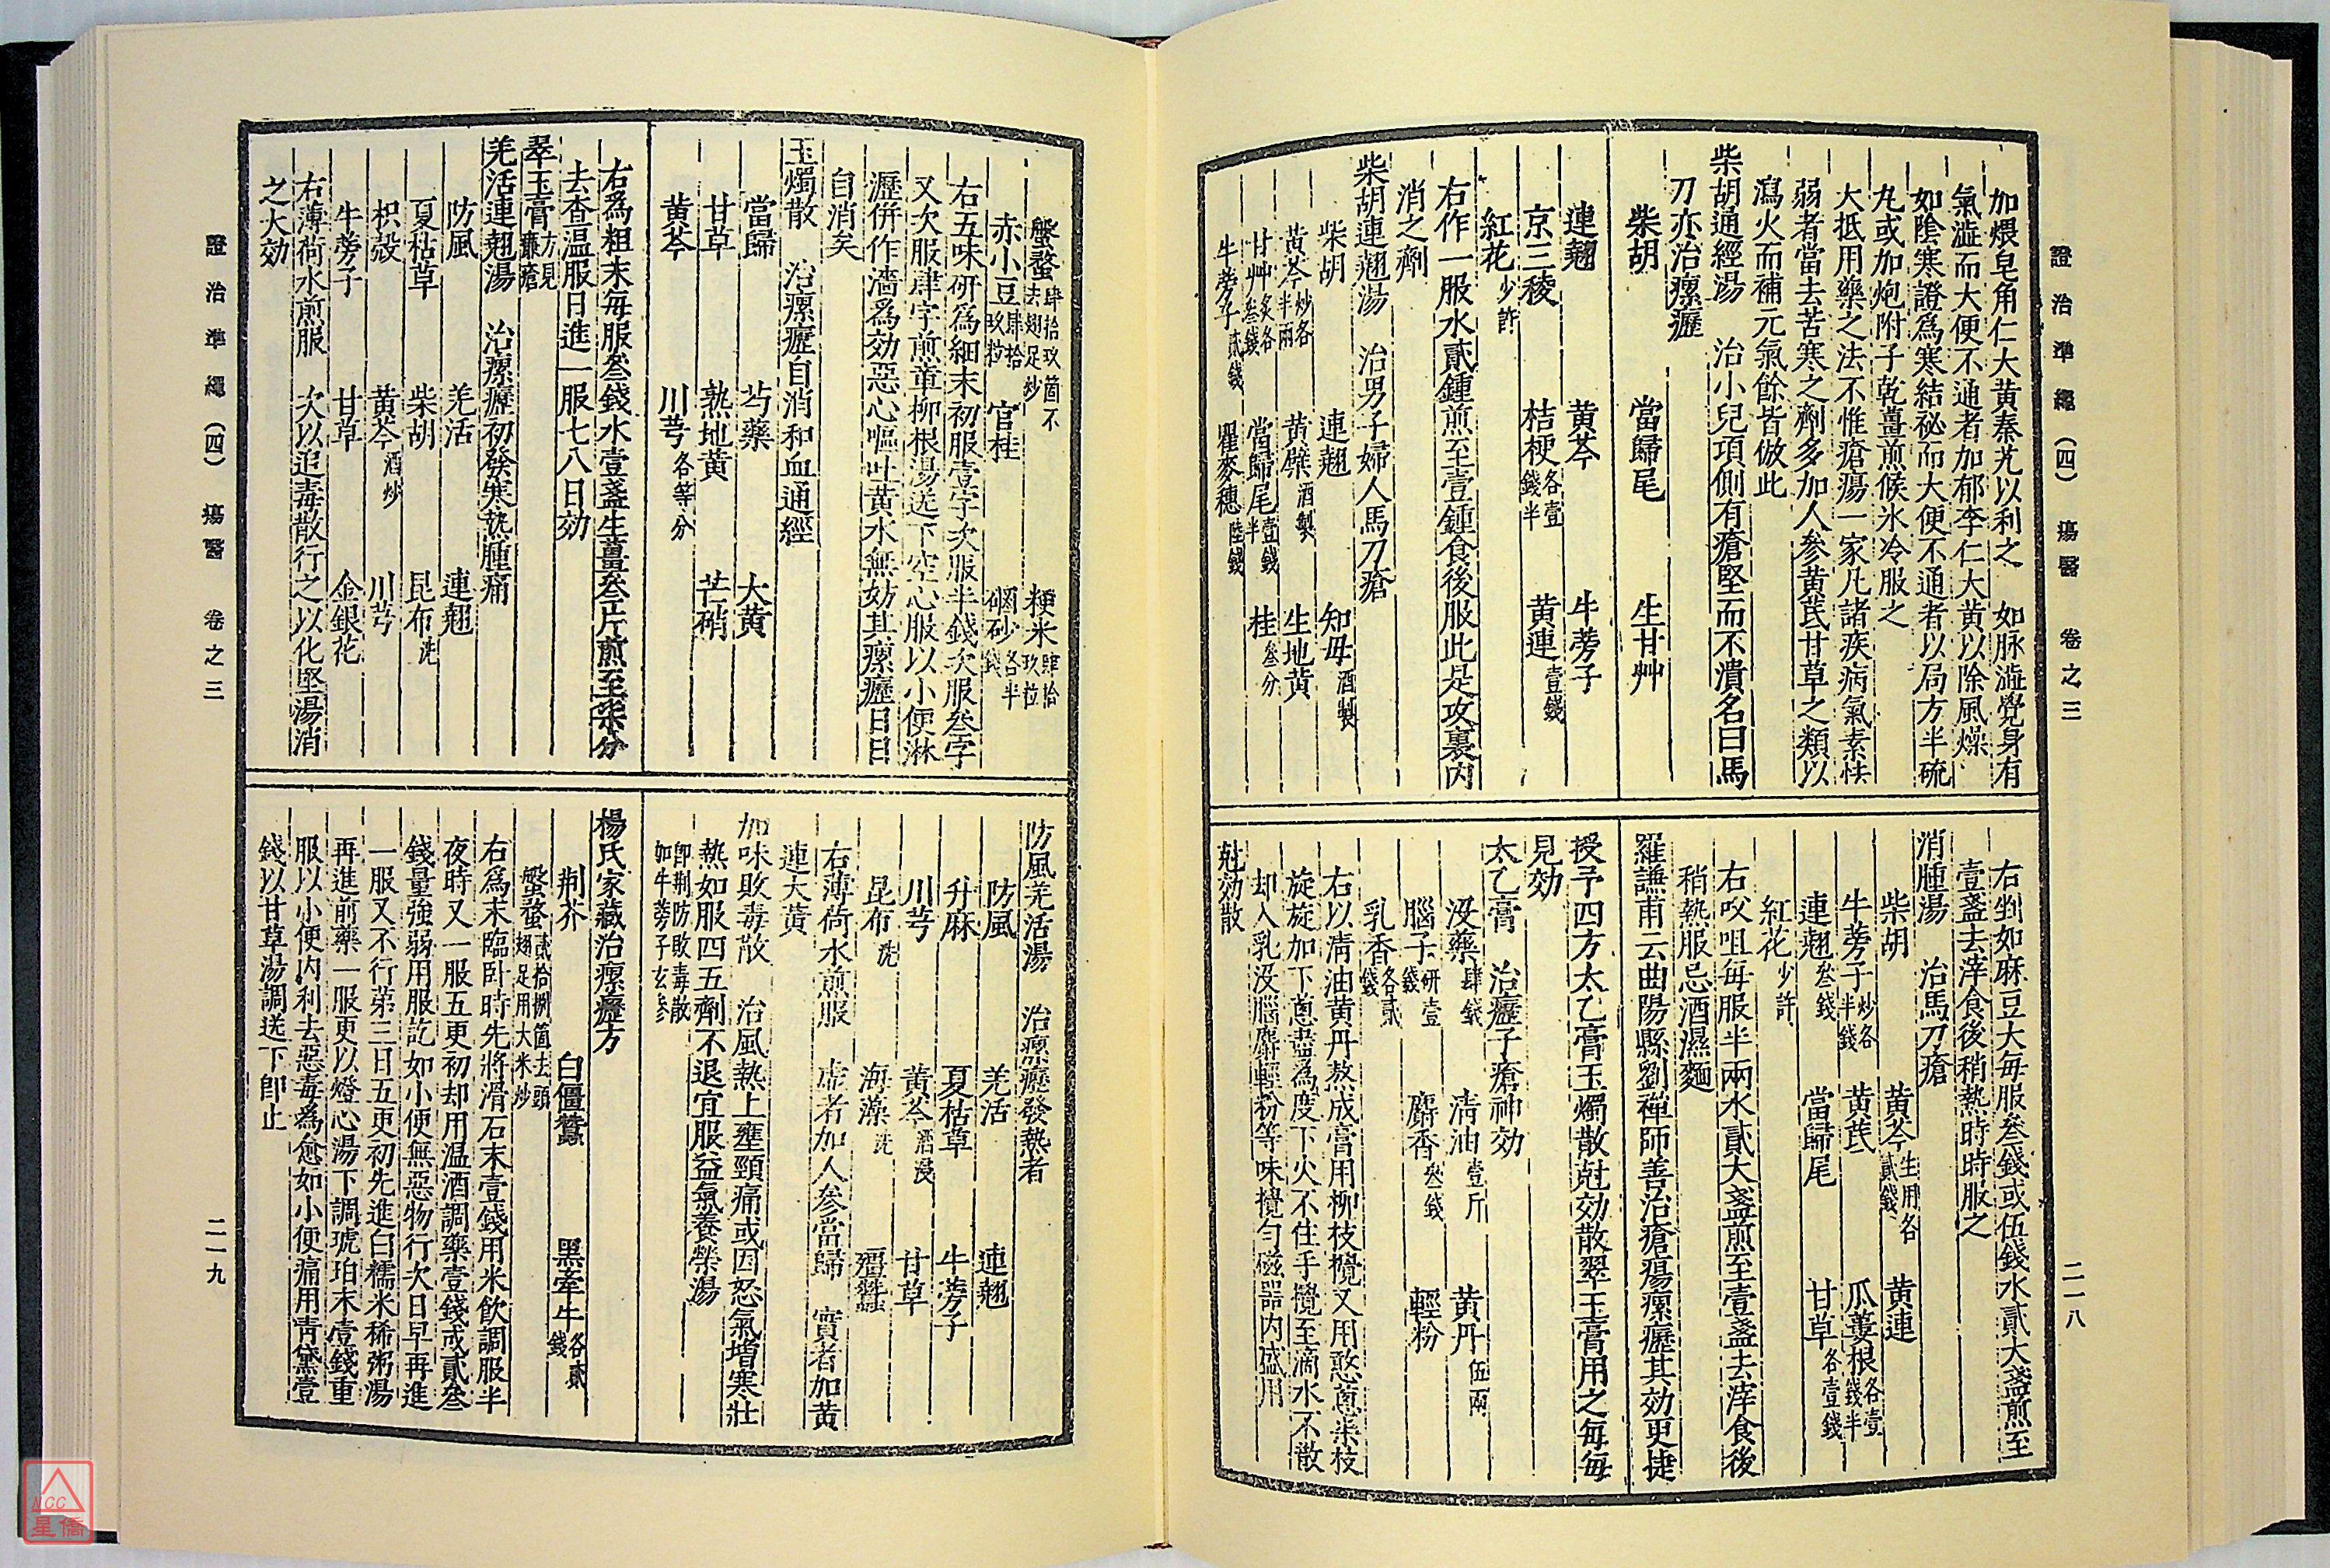 證治準繩（四） 瘍醫 卷之三 二一八
加煨皂角仁大黃秦艽以利之 如脉澁覺身有
氣澁而大便不通者加郁李仁大黃以除風燥
如陰寒證爲寒結祕而大便不通者以局方半硫
丸或加炮附子乾薑煎候氷冷服之
大抵用藥之法不惟瘡瘍一家凡諸疾病氣素怯
弱者當去苦寒之劑多加人參黃芪甘草之類以
瀉火而補元氣餘皆倣此
柴胡通經湯 治小兒項側有瘡堅而不潰名曰馬
刀亦治瘰癧
柴胡 當歸尾 生甘艸
連翹 黃芩 牛蒡子
京三稜 桔梗各壹錢半 黃連壹錢
紅花少許
右作一服水貳鍾煎至壹鍾食後服此足攻裏内
消之劑
柴胡連翹湯 治男子婦人馬刀瘡
柴胡 連翹 知母酒製
黃芩炒各半兩 黃檗酒製 生地黃
甘艸炙各叁錢 當歸尾壹錢半 桂叁分
牛蒡子貳錢 瞿麥穗陸錢
右剉如麻豆大每服叁錢或伍錢水貳大盞煎至
壹盞去滓食後稍熱時時服之
消腫湯 治馬刀瘡
柴胡 黃芩生用各貳錢 黃連
牛蒡子炒各半錢 黃芪 瓜蔞根各壹錢半
連翹叁錢 當歸尾 甘草各壹錢
紅花少許
右㕮咀每服半兩水貳大盞煎至壹盞去滓食後
稍熱服忌酒濕麵
羅謙甫云曲陽縣劉禪師善治瘡瘍瘰癧其効更捷
授予四方太乙膏玉燭散尅効散翠玉膏用之每每
見効
太乙膏 治癧子瘡神効
沒藥肆錢 清油壹斤 黃丹伍兩
腦子研壹錢 麝香叁錢 輕粉
乳香各貳錢
右以清油黃丹熬成膏用柳枝攪又用憨蔥柒枝
旋旋加下蔥盡爲度下火不住手攪至滴水不散
却入乳沒腦麝輕粉等味攪勻磁器内盛用
尅効散
證治準繩（四） 瘍醫 卷之三 二一九
螌蝥肆拾玖箇不去翅足炒 粳米肆拾玖粒
赤小豆肆拾玖粒 官桂 硇砂各半錢
右五味研爲細末初服壹字次服半錢次服叁字
又次服肆字煎葦柳根湯送下空心服以小便淋
瀝併作㵕爲効惡心嘔吐黃水無妨其瘰癧日日
自消矣
玉燭散 治瘰癧自消和血通經
當歸 芍藥 大黃
甘草 熟地黃 芒硝
黃芩 川芎各等分
右爲粗末每服叁錢水壹盞生薑叁片煎至柒分
去查温服日進一服七八日効
翠玉膏方見臁瘡
羌活連翹湯 治瘰癧初發寒熱腫痛
防風 羌活 連翹
夏枯草 柴胡 昆布洗
枳殻 黃芩酒炒 川芎
牛蒡子 甘草 金銀花
右薄荷水煎服 次以追毒散行之以化堅湯消
之大効
防風羌活湯 治瘰癧發熱者
防風 羌活 連翹
升麻 夏枯草 牛蒡子
川芎 黃芩酒浸 甘草
昆布洗 海藻洗 殭蠶
右薄荷水煎服 虛者加人參當歸 實者加黃
連大黃
加味敗毒散 治風熱上壅頸痛或因怒氣增寒壯
熱如服四五劑不退宜服益氣養榮湯
即荆防敗毒散如牛蒡子玄參
楊氏家藏治瘰癧方
荆芥 白僵蠶 黑牽牛各貳錢
螌蝥貳拾捌箇去頭翅足用大米炒
右爲末臨卧時先將滑石末壹錢用米飲調服半
夜時又一服五更初却用温酒調藥壹錢或貳叁
錢量強弱用服訖如小便無惡物行次日早再進
一服又不行第三日五更初先進白糯米稀粥湯
再進前藥一服更以燈心湯下調琥珀末壹錢重
服以小便内利去惡毒爲愈如小便痛用青黛壹
錢以甘草湯調送下卽止
NCC
星僑